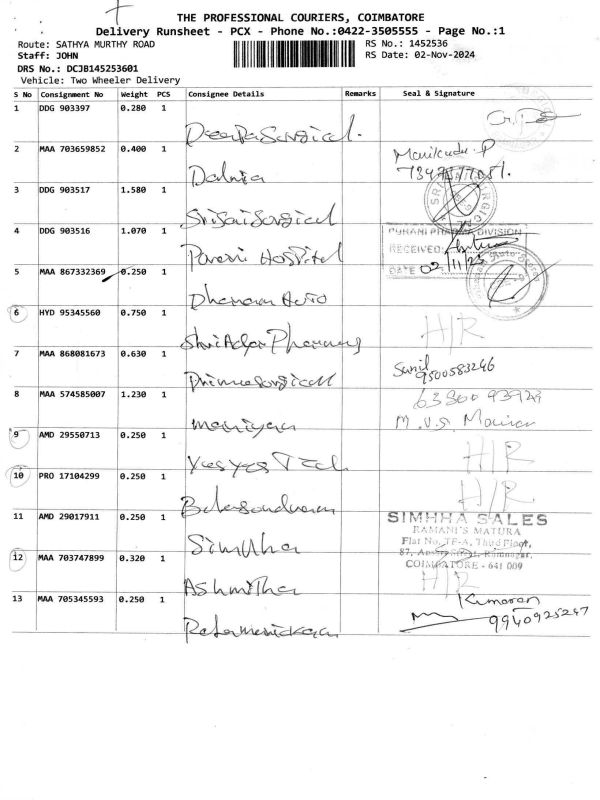 THE PROFESSIONAL COURIERS, COIMBATORE
Delivery Runsheet - PCX - Phone No.:0422-3505555 - Page No.:1
Route: SATHYA MURTHY ROAD RS No.: 1452536
Staff: JOHN RS Date: 02-Nov-2024
DRS No.: DCJB145253601
Vehicle: Two Wheeler Delivery
S No Consignment No Weight PCS Consignee Details Remarks Seal & Signature
1 DDG 903397 0.280 1
Deepa Surgical.
2 MAA 703659852 0.400 1 Manikudu.P
Dalmia
3 DDG 903517 1.580 1
Sri Sai Surgical
4 DDG 903516 1.070 1 PURANI PHARMA DIVISION
RECEIVED:
Purani Hospital
5 MAA 867332369 0.250 1 DATE 02/11/24
Dhanam Auto
6 HYD 95345560 0.750 1 H/R
Shri Adya Pharmacy
7 MAA 868081673 0.630 1 Sunil
9500583246
Prime Surgical
8 MAA 574585007 1.230 1
M.V.S.
9 AMD 29550713 0.250 1 H/R
Yes Yes Tech
10 PRO 17104299 0.250 1 H/R
11 AMD 29017911 0.250 1 SIMHHA SALES
RAMANI'S MATURA
Flat No. TF-A, Third Floor,
Simhha
87, Ramnagar,
COIMBATORE - 641 009
12 MAA 703747899 0.320 1 H/R
Ashmitha
13 MAA 705345593 0.250 1 Kumaran
9940925247